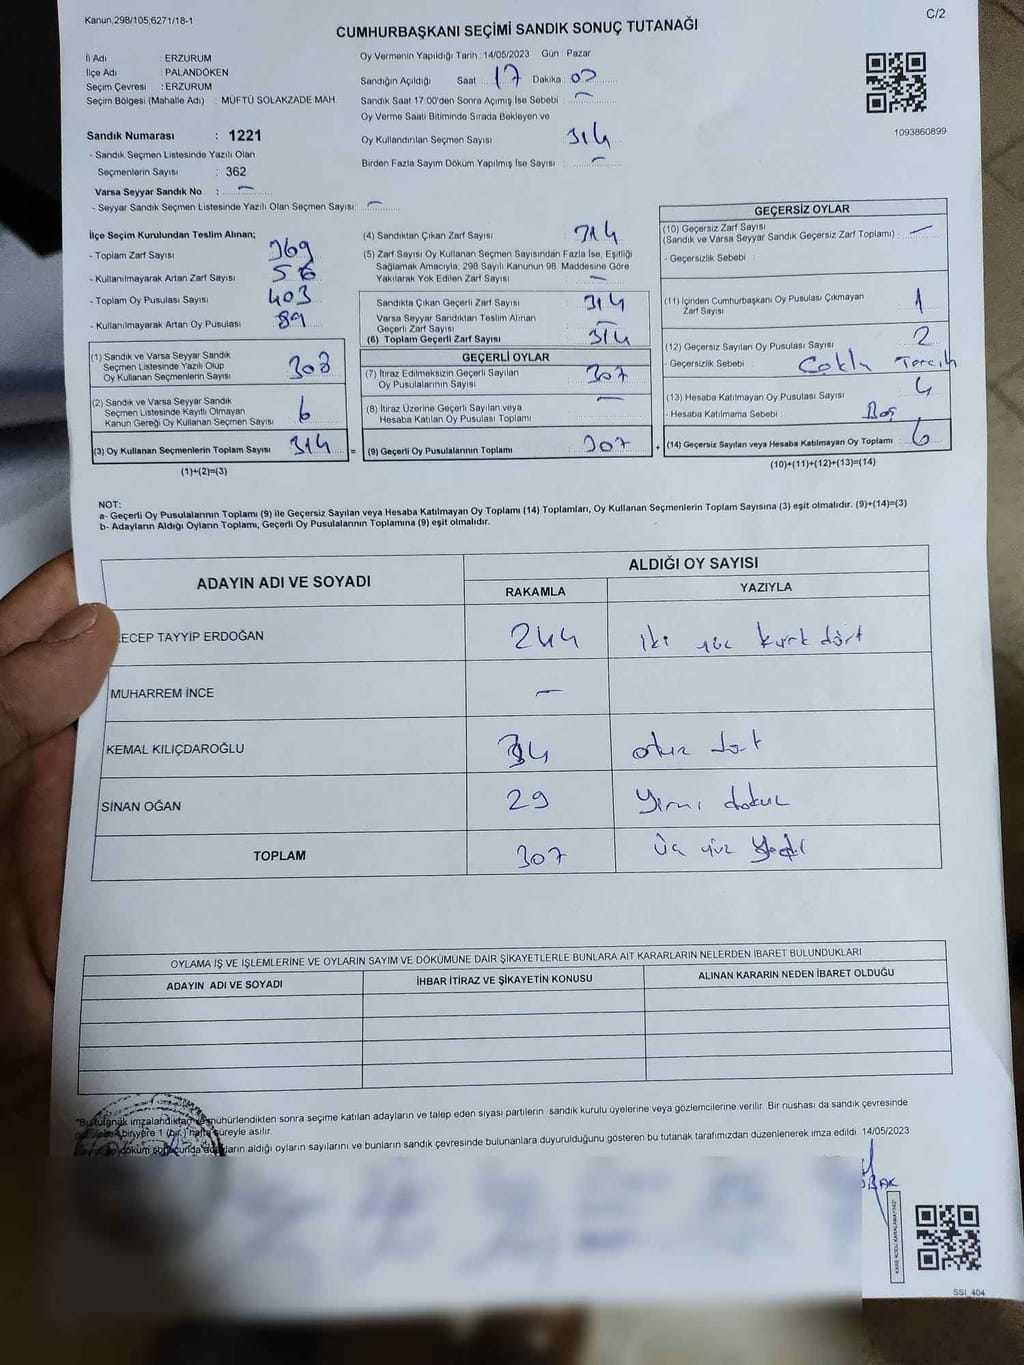 Kanun;298/105,6271/18-1
C/2
CUMHURBAŞKANI SEÇİMİ SANDIK SONUÇ TUTANAĞI
İl Adı : ERZURUM
İlçe Adı : PALANDÖKEN
Seçim Çevresi : ERZURUM
Seçim Bölgesi (Mahalle Adı) : MÜFTÜ SOLAKZADE MAH
Sandık Numarası : 1221
- Sandık Seçmen Listesinde Yazılı Olan
Seçmenlerin Sayısı : 362
Varsa Seyyar Sandık No : –
- Seyyar Sandık Seçmen Listesinde Yazılı Olan Seçmen Sayısı: –
Oy Vermenin Yapıldığı Tarih :14/05/2023 Gün : Pazar
Sandığın Açıldığı Saat : 17 Dakika : 00
Sandık Saat 17:00'den Sonra Açımış İse Sebebi : –
Oy Verme Saati Bitiminde Sırada Bekleyen ve
Oy Kullandırılan Seçmen Sayısı : 314
Birden Fazla Sayım Döküm Yapılmış İse Sayısı : –
1093860899
İlçe Seçim Kurulundan Teslim Alınan;
- Toplam Zarf Sayısı : 369
- Kullanılmayarak Artan Zarf Sayısı : 56
- Toplam Oy Pusulası Sayısı : 403
- Kullanılmayarak Artan Oy Pusulası : 89
(1) Sandık ve Varsa Seyyar Sandık
Seçmen Listesinde Yazılı Olup
Oy Kullanan Seçmenlerin Sayısı : 308
(2) Sandık ve Varsa Seyyar Sandık
Seçmen Listesinde Kayıtlı Olmayan
Kanun Gereği Oy Kullanan Seçmen Sayısı : 6
(3) Oy Kullanan Seçmenlerin Toplam Sayısı : 314
(1)+(2)=(3)
(4) Sandıktan Çıkan Zarf Sayısı : 314
(5) Zarf Sayısı Oy Kullanan Seçmen Sayısından Fazla İse, Eşitliği
Sağlamak Amacıyla; 298 Sayılı Kanunun 98. Maddesine Göre
Yakılarak Yok Edilen Zarf Sayısı : –
Sandıkta Çıkan Geçerli Zarf Sayısı : 314
Varsa Seyyar Sandıktan Teslim Alınan
Geçerli Zarf Sayısı : –
(6) Toplam Geçerli Zarf Sayısı : 314
GEÇERLİ OYLAR
(7) İtiraz Edilmeksizin Geçerli Sayılan
Oy Pusulalarının Sayısı : 307
(8) İtiraz Üzerine Geçerli Sayılan veya
Hesaba Katılan Oy Pusulası Toplamı : –
= (9) Geçerli Oy Pusulalarının Toplamı : 307
GEÇERSİZ OYLAR
(10) Geçersiz Zarf Sayısı
(Sandık ve Varsa Seyyar Sandık Geçersiz Zarf Toplamı) : –
- Geçersizlik Sebebi :
(11) İçinden Cumhurbaşkanı Oy Pusulası Çıkmayan
Zarf Sayısı : 1
(12) Geçersiz Sayılan Oy Pusulası Sayısı : 2
- Geçersizlik Sebebi : Çoklu Tercih
(13) Hesaba Katılmayan Oy Pusulası Sayısı : 4
- Hesaba Katılmama Sebebi : Boş
+ (14) Geçersiz Sayılan veya Hesaba Katılmayan Oy Toplamı : 6
(10)+(11)+(12)+(13)=(14)
NOT:
a- Geçerli Oy Pusulalarının Toplamı (9) ile Geçersiz Sayılan veya Hesaba Katılmayan Oy Toplamı (14) Toplamları, Oy Kullanan Seçmenlerin Toplam Sayısına (3) eşit olmalıdır. (9)+(14)=(3)
b- Adayların Aldığı Oyların Toplamı, Geçerli Oy Pusulalarının Toplamına (9) eşit olmalıdır.
ADAYIN ADI VE SOYADI
ALDIĞI OY SAYISI
RAKAMLA YAZIYLA
ECEP TAYYİP ERDOĞAN 244 iki yüz kırk dört
MUHARREM İNCE –
KEMAL KILIÇDAROĞLU 34 otuz dört
SİNAN OĞAN 29 Yirmi dokuz
TOPLAM 307 Üç yüz yedi
OYLAMA İŞ VE İŞLEMLERİNE VE OYLARIN SAYIM VE DÖKÜMÜNE DAİR ŞİKAYETLERLE BUNLARA AİT KARARLARIN NELERDEN İBARET BULUNDUKLARI
ADAYIN ADI VE SOYADI İHBAR İTİRAZ VE ŞİKAYETİN KONUSU ALINAN KARARIN NEDEN İBARET OLDUĞU
*Bu tutanak imzalandıktan ve mühürlendikten sonra seçime katılan adayların ve talep eden siyasi partilerin sandık kurulu üyelerine veya gözlemcilerine verilir. Bir nushası da sandık çevresinde
1 (bir) hafta süreyle asılır.
döküm sonucunda adayların aldığı oyların sayılarını ve bunların sandık çevresinde bulunanlara duyurulduğunu gösteren bu tutanak tarafımızdan düzenlenerek imza edildi. 14/05/2023
SSI_404